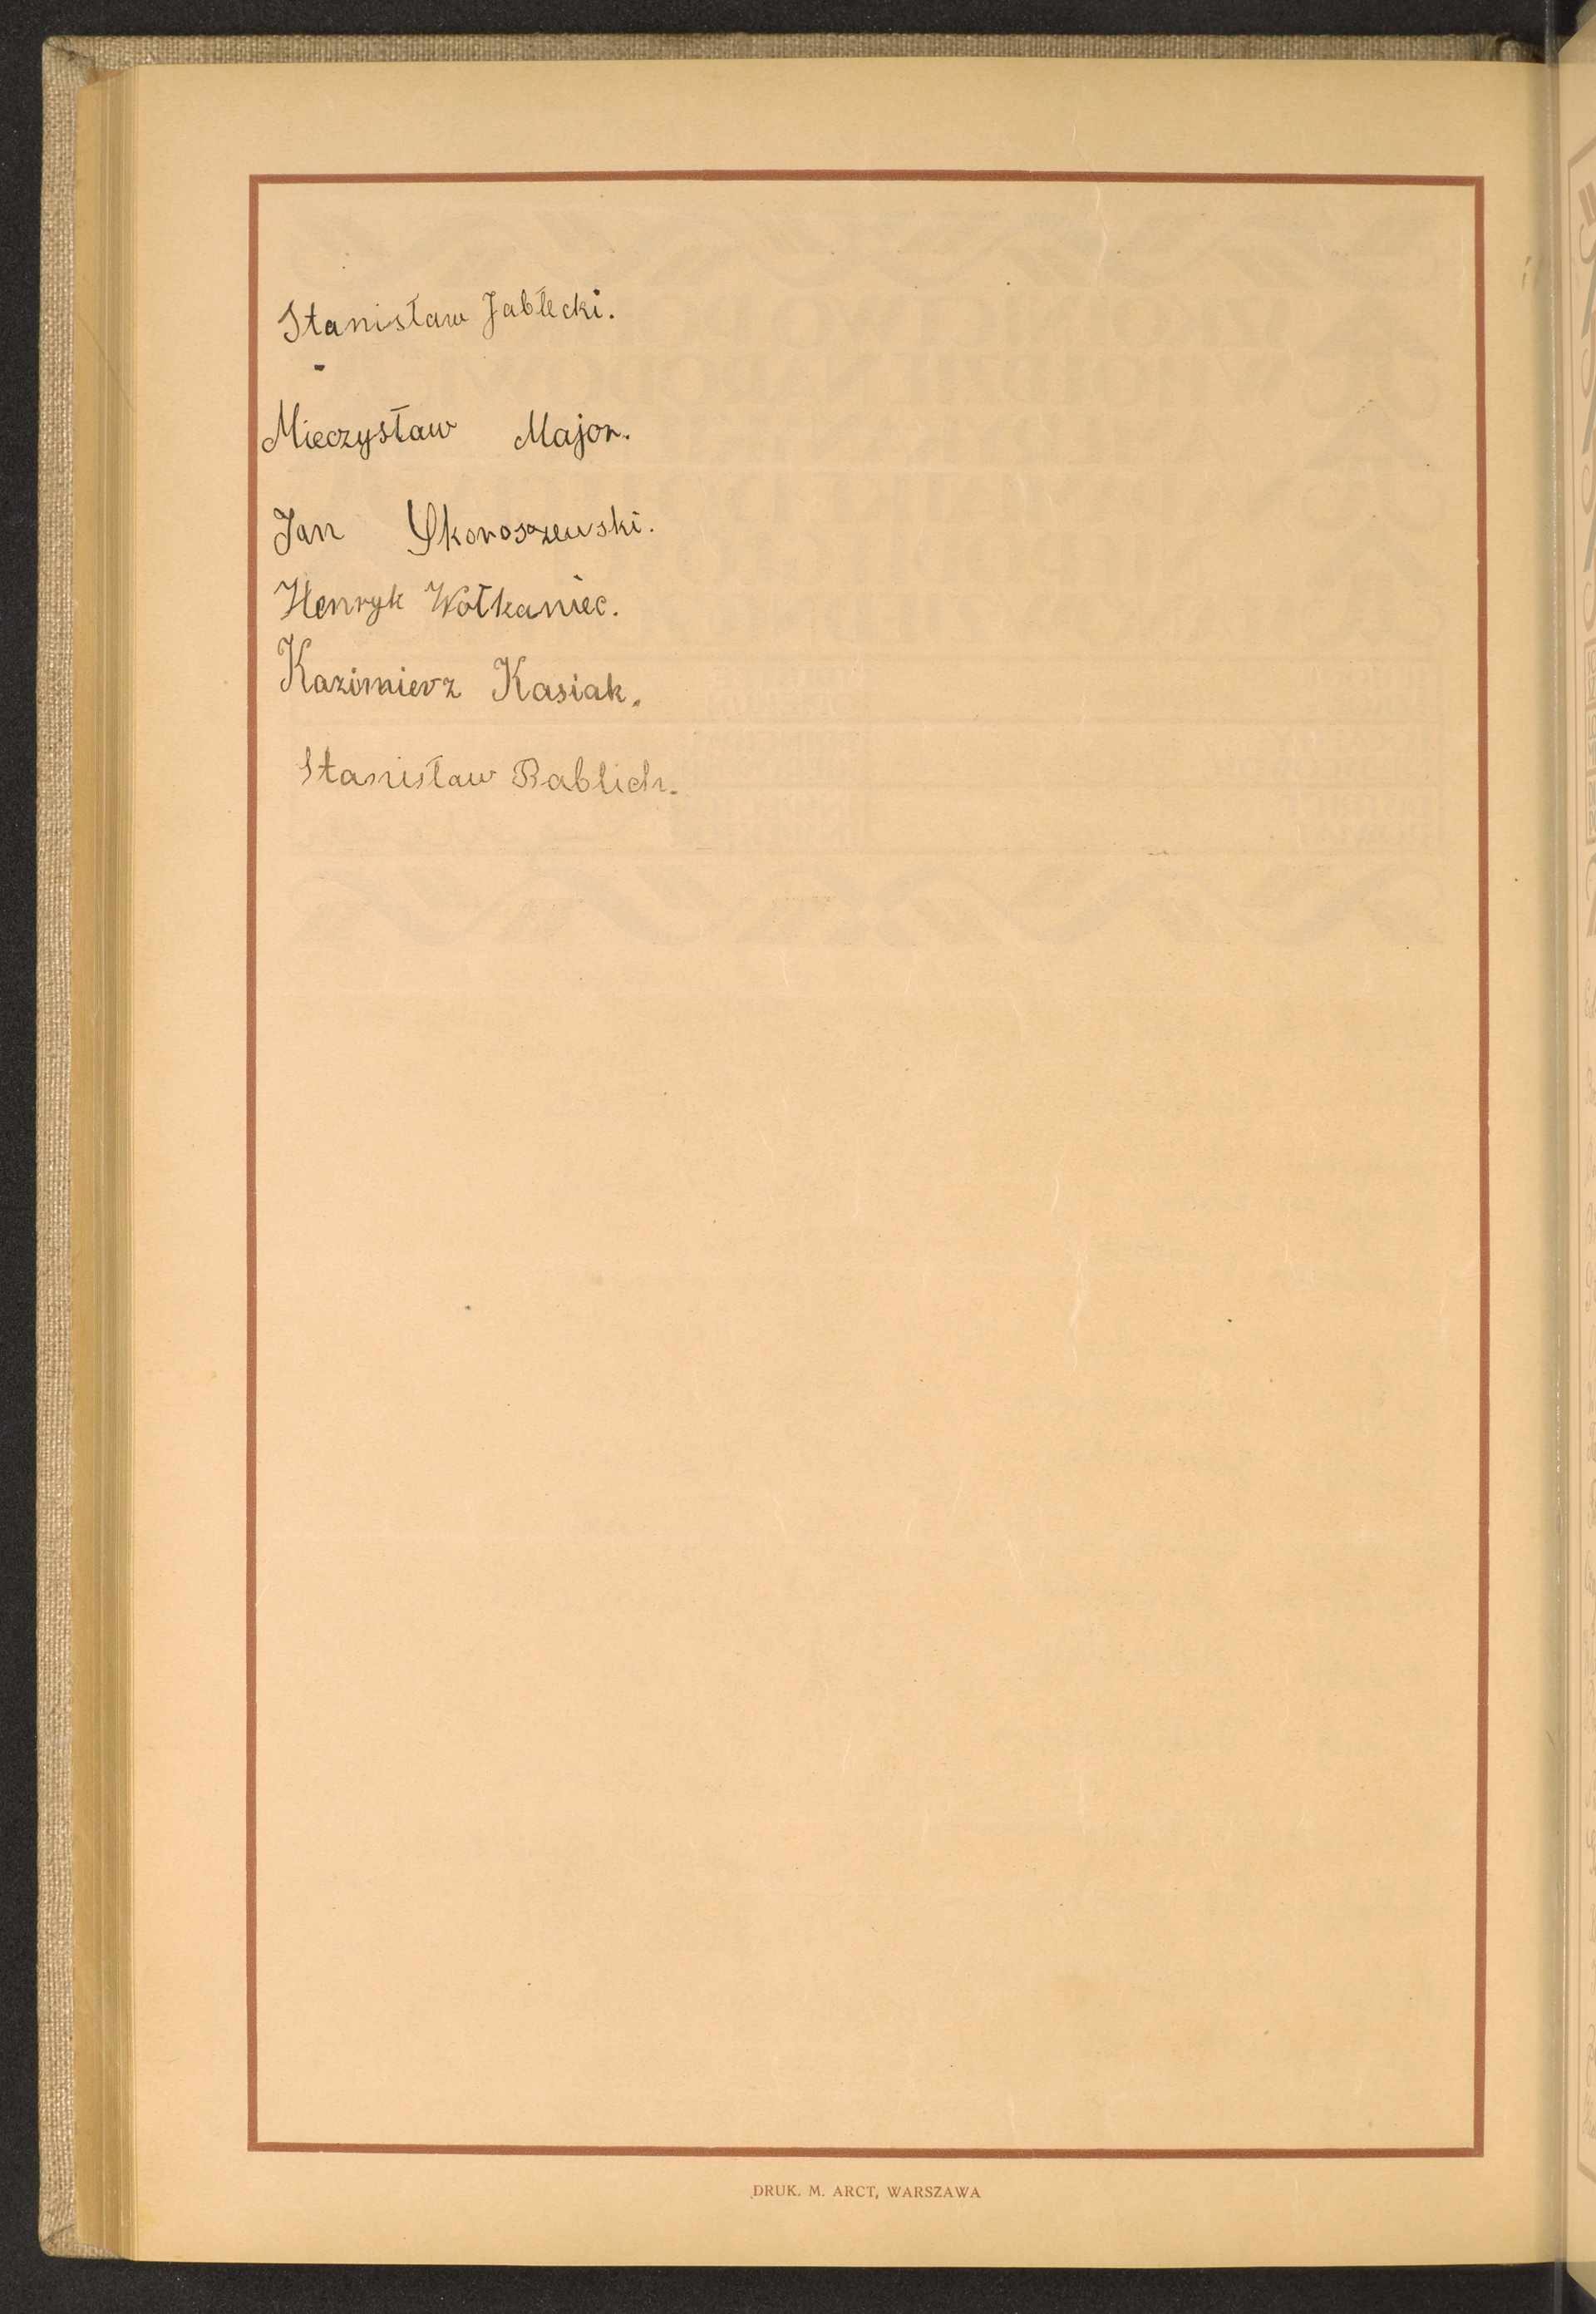 Stanisław Jabłecki.
Mieczysław Major.
Jan Skoroszewski.
Henryk Wołkaniec.
Kazimierz Kasiak.
Stanisław Bablich.
DRUK. M. ARCT, WARSZAWA